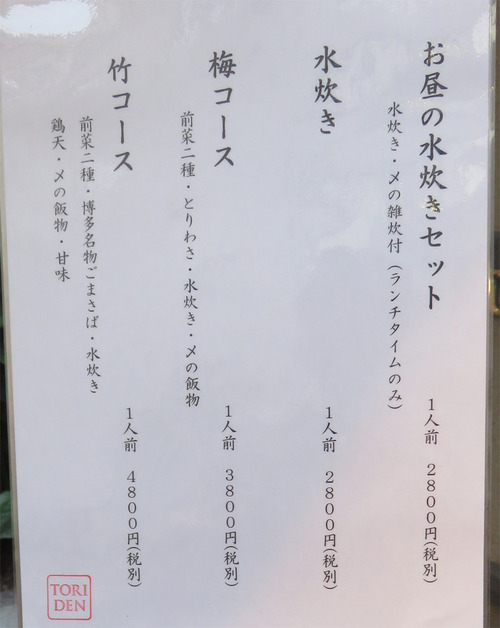 お昼の水炊きセット
水炊き・〆の雑炊付（ランチタイムのみ）
１人前　２８００円（税別）
水炊き
１人前　２８００円（税別）
梅コース
前菜二種・とりわさ・水炊き・〆の飯物
１人前　３８００円（税別）
竹コース
前菜二種・博多名物ごまさば・水炊き
鶏天・〆の飯物・甘味
１人前　４８００円（税別）
TORI
DEN